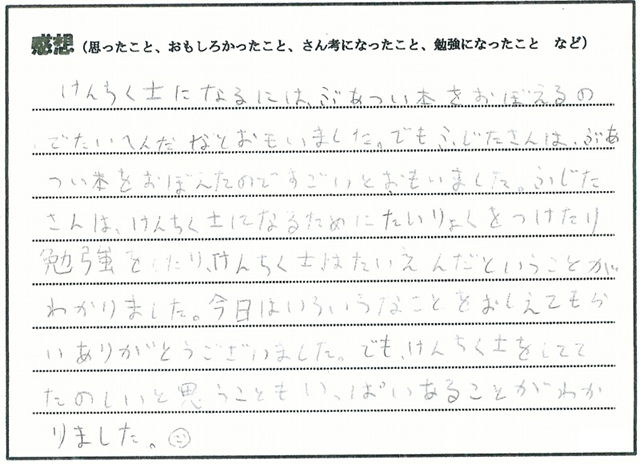 感想（思ったこと、おもしろかったこと、さん考になったこと、勉強になったこと　など）
けんちく士になるには、ぶあつい本をおぼえるの
でたいへんだなとおもいました。でもふじたさんは、ぶあ
つい本をおぼえたのですごいとおもいました。ふじた
さんは、けんちく士になるためにたいりょくをつけたり
勉強をしたり、けんちく士はたいえんだということが
わかりました。今日はいろいろなことをおしえてもら
いありがとうございました。でも、けんちく士をしてて
たのしいと思うこともいっぱいあることがわか
りました。